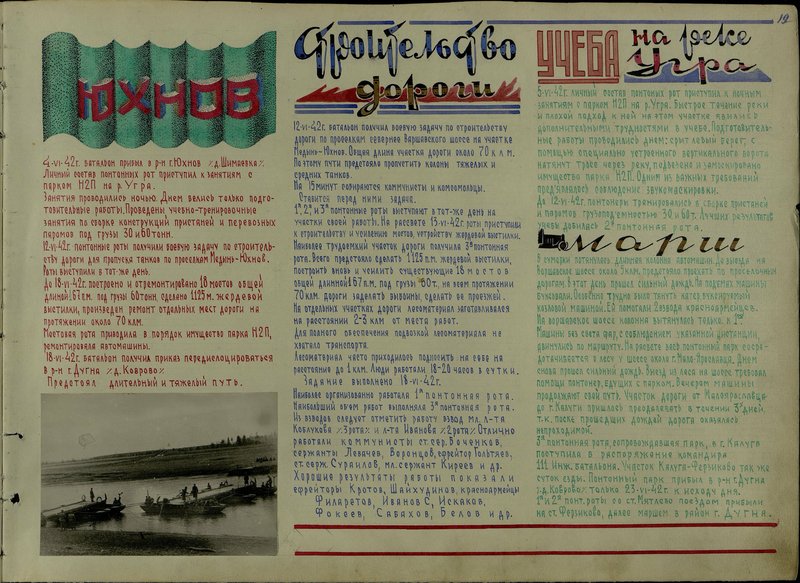 19
ЮХНОВ
4-VI-42г. батальон прибыл в р-н г.Юхнов /д.Шимаевка/.
Личный состав понтонных рот приступил к занятиям с
парком Н2П на р.Угра.
Занятия проводились ночью. Днем велись только подго-
товительные работы. Проведены учебно-тренировочные
занятия по сборке конструкций пристаней и перевозных
паромов под грузы 30 и 60 тонн.
12-VI-42г. понтонные роты получили боевую задачу по строитель-
ству дороги для пропуска танков по проселкам Медынь-Юхнов.
Роты выступили в тот-же день.
До 18-VI-42г построено и отремонтировано 18 мостов общей
длиной 167 п.м. под грузы 60 тонн, сделано 1125 м. жердевой
выстилки, произведен ремонт отдельных мест дороги на
протяжении около 70 клм.
Мостовая рота приводила в порядок имущество парка Н2П,
ремонтировала автомашины.
18-VI-42г. батальон получил приказ передислоцироваться
в р-н г.Дугна /д.Коврово/
Предстоял длительный и тяжелый путь.
Строительство
дороги
12-VI-42г. батальон получил боевую задачу по строительству
дороги по проселкам севернее Варшавского шоссе на участке
Медынь-Юхнов. Общая длина участка дороги около 70 клм.
По этому пути предстояло пропустить колонны тяжелых и
средних танков.
На 15 минут собираются коммунисты и комсомольцы.
Ставится перед ними задача.
1ª, 2ª и 3ª понтонные роты выступают в тот-же день на
участки своей работы. На рассвете 13-VI-42г. роты приступили
к строительству и усилению мостов, устройству жердевой выстилки.
Наиболее трудоемкий участок дороги получила 3ª понтонная
рота. Всего предстояло сделать 1125 п.м. жердевой выстилки,
построить вновь и усилить существующие 18 мостов
общей длиной 167 п.м. под грузы 60т. на всем протяжении
70 клм. дороги заделать выбоины, сделать ее проезжей.
На отдельных участках дороги лесоматериал заготавливался
на расстоянии 2-3 клм от места работ.
Для полного обеспечения подвозкой лесоматериала не
хватало транспорта.
Лесоматериал часто приходилось подносить на себе на
расстояние до 1 клм. Люди работали 18-20 часов в сутки.
Задание выполнено 18-VI-42г.
Наиболее организованно работала 1ª понтонная рота.
Наибольший объем работ выполняла 3ª понтонная рота.
Из взводов следует отметить работу взвод мл. л-та
Коблукова /3 рота/ и л-та Иванова /2 рота/ Отлично
работали коммунисты ст.сер. Боченков,
сержанты Левачев, Воронцов, ефрейтор Гольтяев,
ст.серж. Сураилов, мл.сержант Киреев и др.
Хорошие результаты работы показали
ефрейторы Кротов, Шайхудинов, красноармейцы
Филаретов, Иванов С., Искаков,
Фокеев, Сабахов, Белов и др.
УЧЕБА на реке
Угра
5-VI-42г. личный состав понтонных рот приступил к ночным
занятиям с парком Н2П на р.Угра. Быстрое течение реки
и плохой подход к ней на этом участке явились
дополнительными трудностями в учебе. Подготовитель-
ные работы проводились днем: срыт левый берег, с
помощью специально устроенного вертикального ворота
натянут трос через реку, подвезено и замаскировано
имущество парка Н2П. Одним из важных требований
предъявлялось соблюдение звукомаскировки.
До 12-VI-42г. понтонеры тренировались в сборке пристаней
и паромов грузоподъемностью 30 и 60т. Лучших результатов
учебы добилась 2ª понтонная рота.
марш
В сумерки потянулась длинная колонна автомашин. До выезда на
Варшавское шоссе около 5 клм. предстояло проехать по проселочным
дорогам. В этот день прошел сильный дождь. На подъемах машины
буксовали. Особенно трудно было тянуть катер буксируемый
козловой машиной. Ей помогали 2 взвода красноармейцев.
На Варшавское шоссе колонна вытянулась только к
Машины без света фар, с соблюдением указанной дистанции,
двинулись по маршруту. На рассвете весь понтонный парк сосре-
дотачивается в лесу у шоссе около г.Мало-Ярославца. Днем
снова прошел сильный дождь. Выезд из леса на шоссе требовал
помощи понтонер, едущих с парком. Вечером машины
продолжают свой путь. Участок дороги от Малоярославца
до г. Калуги пришлось преодолевать в течении 3ˣ дней,
т.к. после прошедших дождей дорога оказалась
непроходимой.
3ª понтонная рота, сопровождавшая парк, в г. Калуга
поступила в распоряжение командира
111 Инж. батальона. Участок Калуга-Ферзиково так же
суток езды. Понтонный парк прибыл в р-н г.Дугна
/д. Коврово/ только 23-VI-42г. к исходу дня.
1ª и 2ª понт. роты со ст. Мятлево поездом прибыли
на ст. Ферзиково, далее маршем в район г. Дугна.